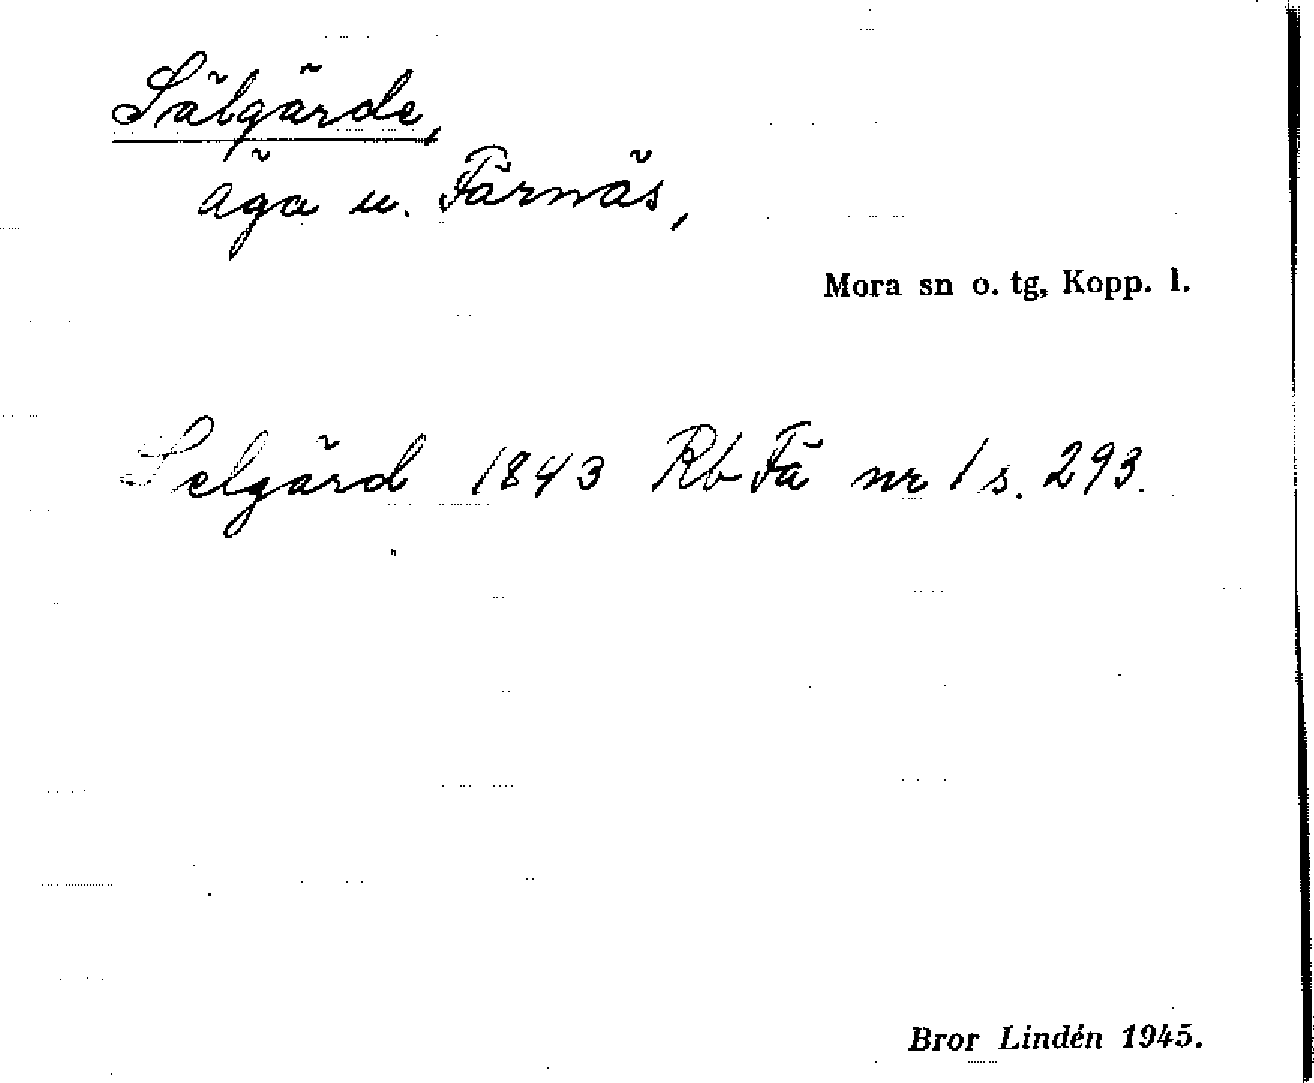 Sälgärde,
äga u. Färnäs,
Mora sn o. tg, Kopp. l.
Selgärd 1843 Rb Fä nr 1 s. 293.
Bror Lindén 1945.